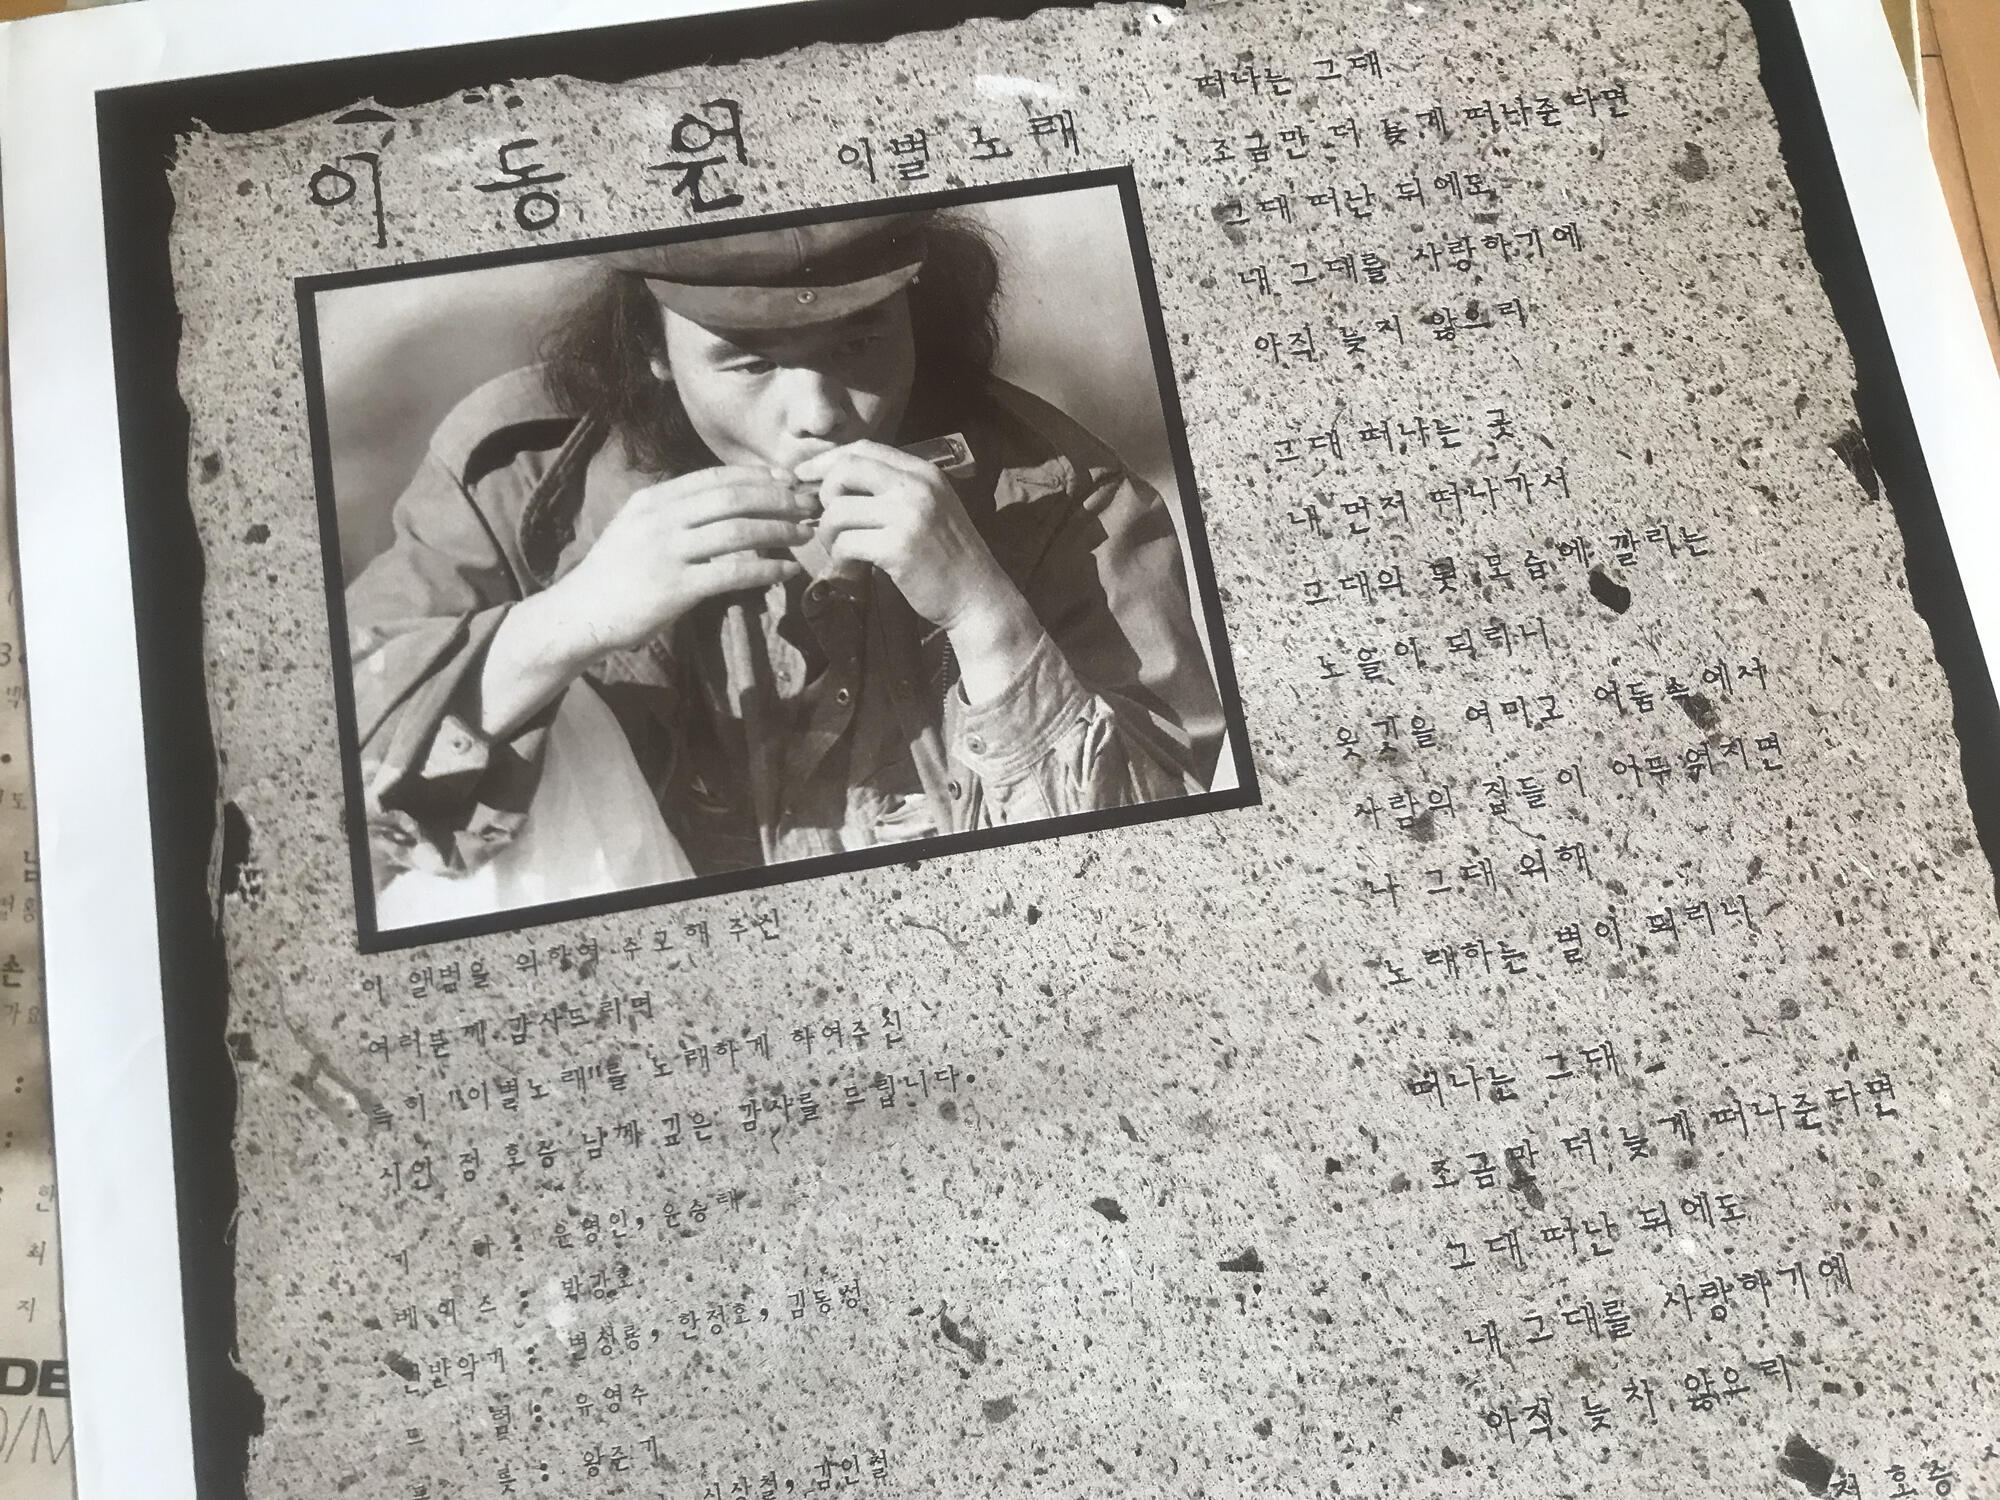 이 동 원 이별 노래
떠나는 그대
조금만 더 늦게 떠나준다면
그대 떠난 뒤에도
내 그대를 사랑하기에
아직 늦지 않으리
그대 떠나는 곳
내 먼저 떠나가서
그대의 뒷 모습에 깔리는
노을이 되리니
옷깃을 여미고 어둠속에서
사람의 집들이 어두워지면
나 그대 위해
노래하는 별이 되리니
떠나는 그대
조금만 더 늦게 떠나준다면
그대 떠난 뒤에도
내 그대를 사랑하기에
아직 늦지 않으리
정 호승
이 앨범을 위하여 수고해 주신
여러분께 감사드리면
특히 "이별노래"를 노래하게 하여주신
시인 정 호승 님께 깊은 감사를 드립니다.
기 타 : 윤영인, 윤승태
베이스 : 박강호
건반악기 : 변성룡, 한정호, 김동성
드 럼 : 유영수
플 룻 : 왕준기
김인철